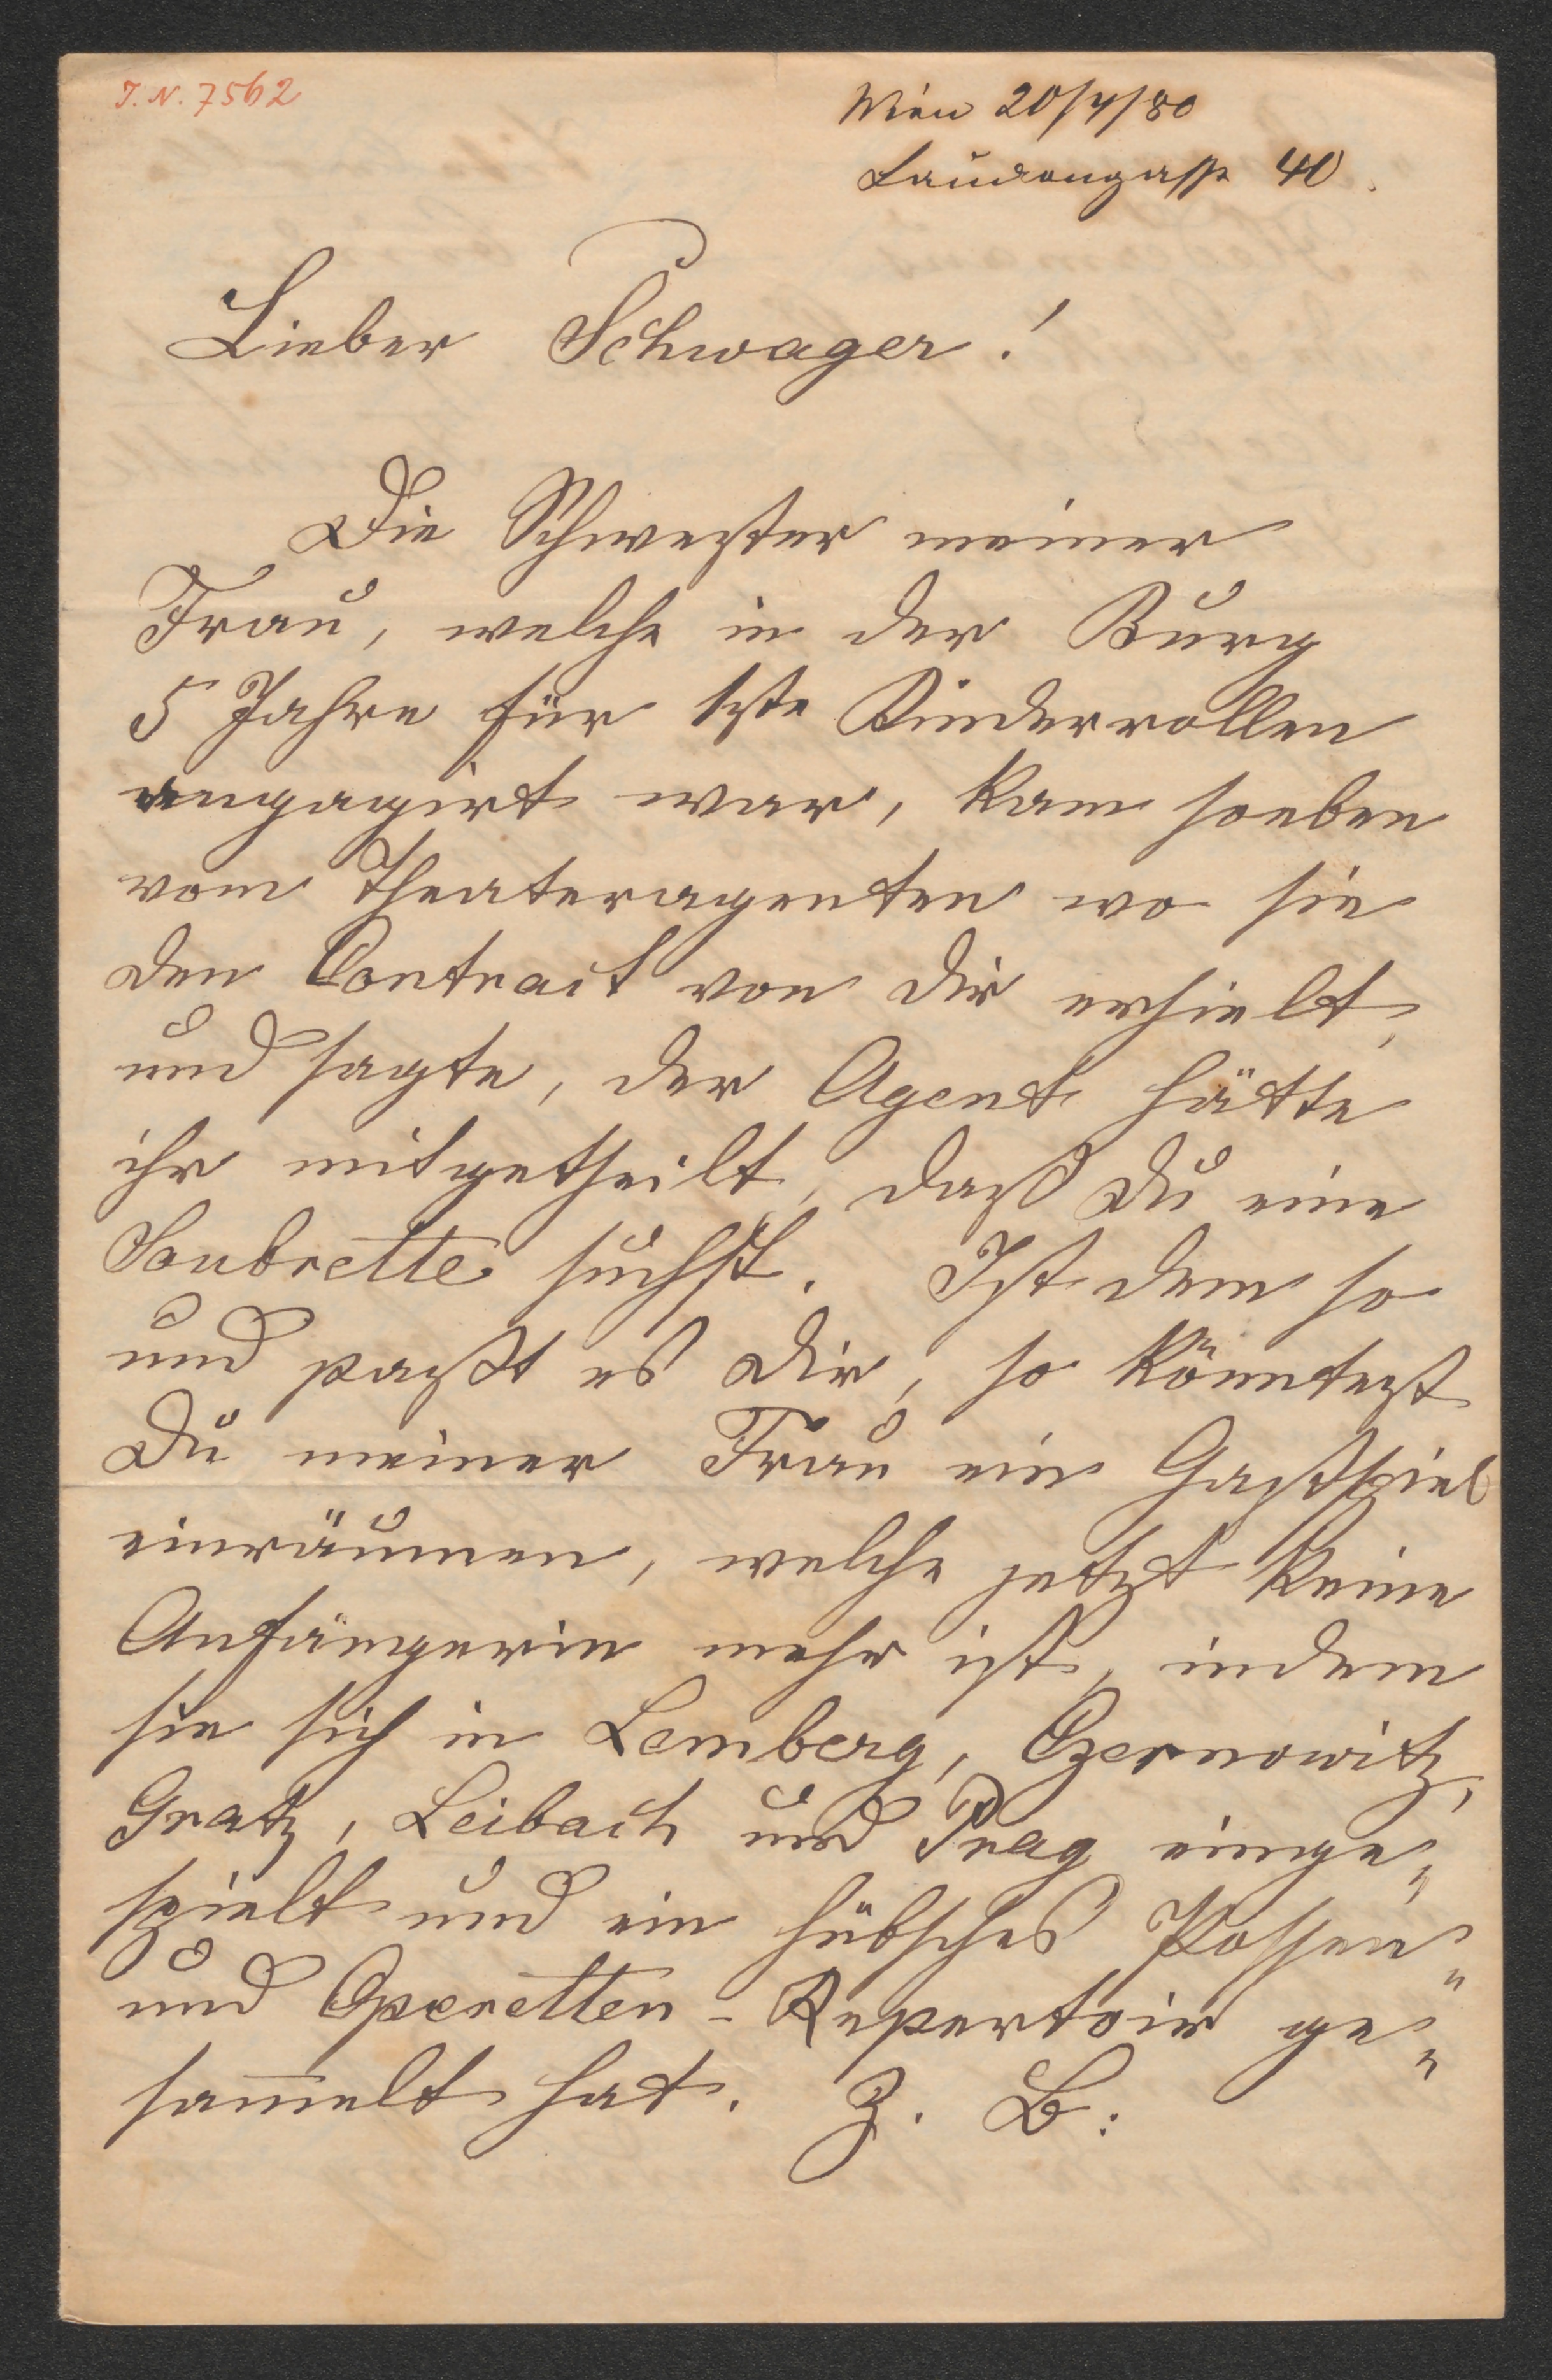 I. N. 7562
Wien 20/4/80
Laudongasse 40.
Lieber Schwager!
Die Schwester meiner
Frau, welche in der Burg
5 Jahre für 1ste Kinderrollen
engagirt war, kam soeben
vom Theateragenten wo sie
den Contract von Dir erhielt,
und sagte, der Agent hätte
ihr mitgetheilt, daß Du eine
Soubrette suchst. Ist dem so
und paßt es Dir, so könntest
Du meiner Frau ein Gastspiel
einräumen, welche jetzt keine
Anfängerin mehr ist, indem
sie sich in Lemberg, Czernowitz,
Gratz, Leibach und Prag einge„
spielt und ein hübsches Possen„
und Operetten-Repertoir ge„
sam̅elt hat. Z. B: